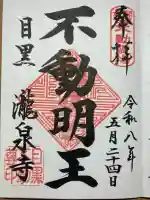 奉拝
令和八年
五月二十四日
不動明王
目黒
瀧泉寺